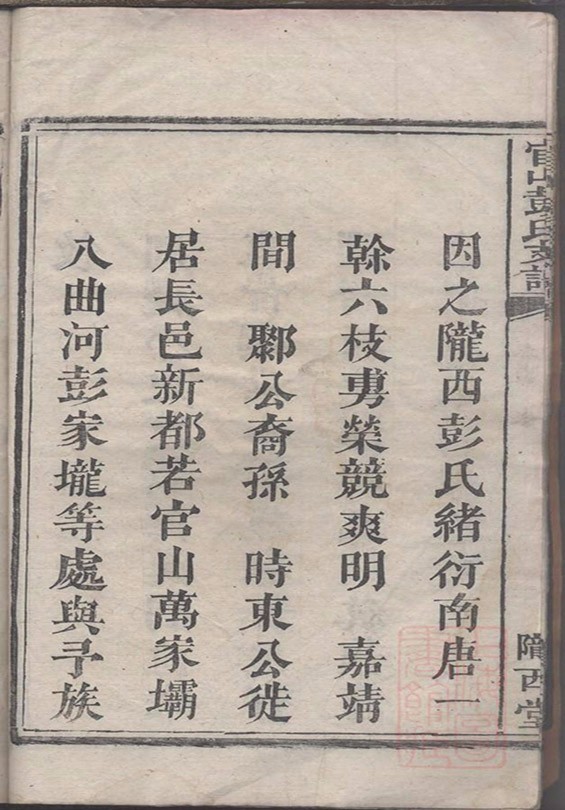 官山彭氏支譜
隴西堂
因之隴西彭氏緒衍南唐一
榦六枝勇榮競爽明 嘉靖
間 鄴公裔孫 時東公徙
居長邑新都若官山萬家壩
八曲河彭家壠等處與予族